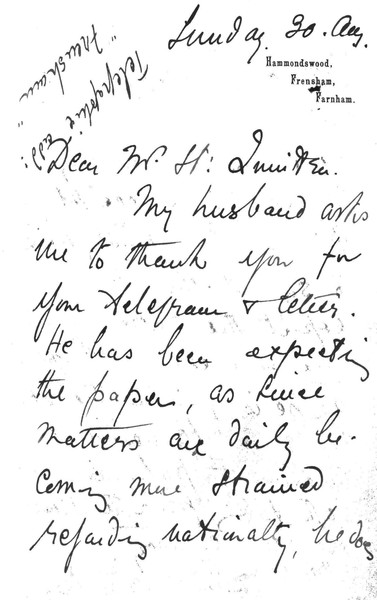 Sunday. 30. Aug.
Hammondswood,
Frensham,
Farnham.
Telegraphic add:
"Frensham"
Dear Mr. St:
My husband asks
me to thank you for
your telegram & letter.
He has been expecting
the papers, as since
matters are daily be-
coming more strained
regarding nationalty, he does